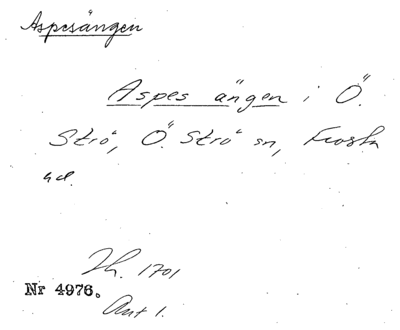 Aspesängen
Aspes ängen i Ö.
Strö, Ö. Strö sn, Frosta
hd.
Jh. 1701
Nr 4976.
Ant 1.